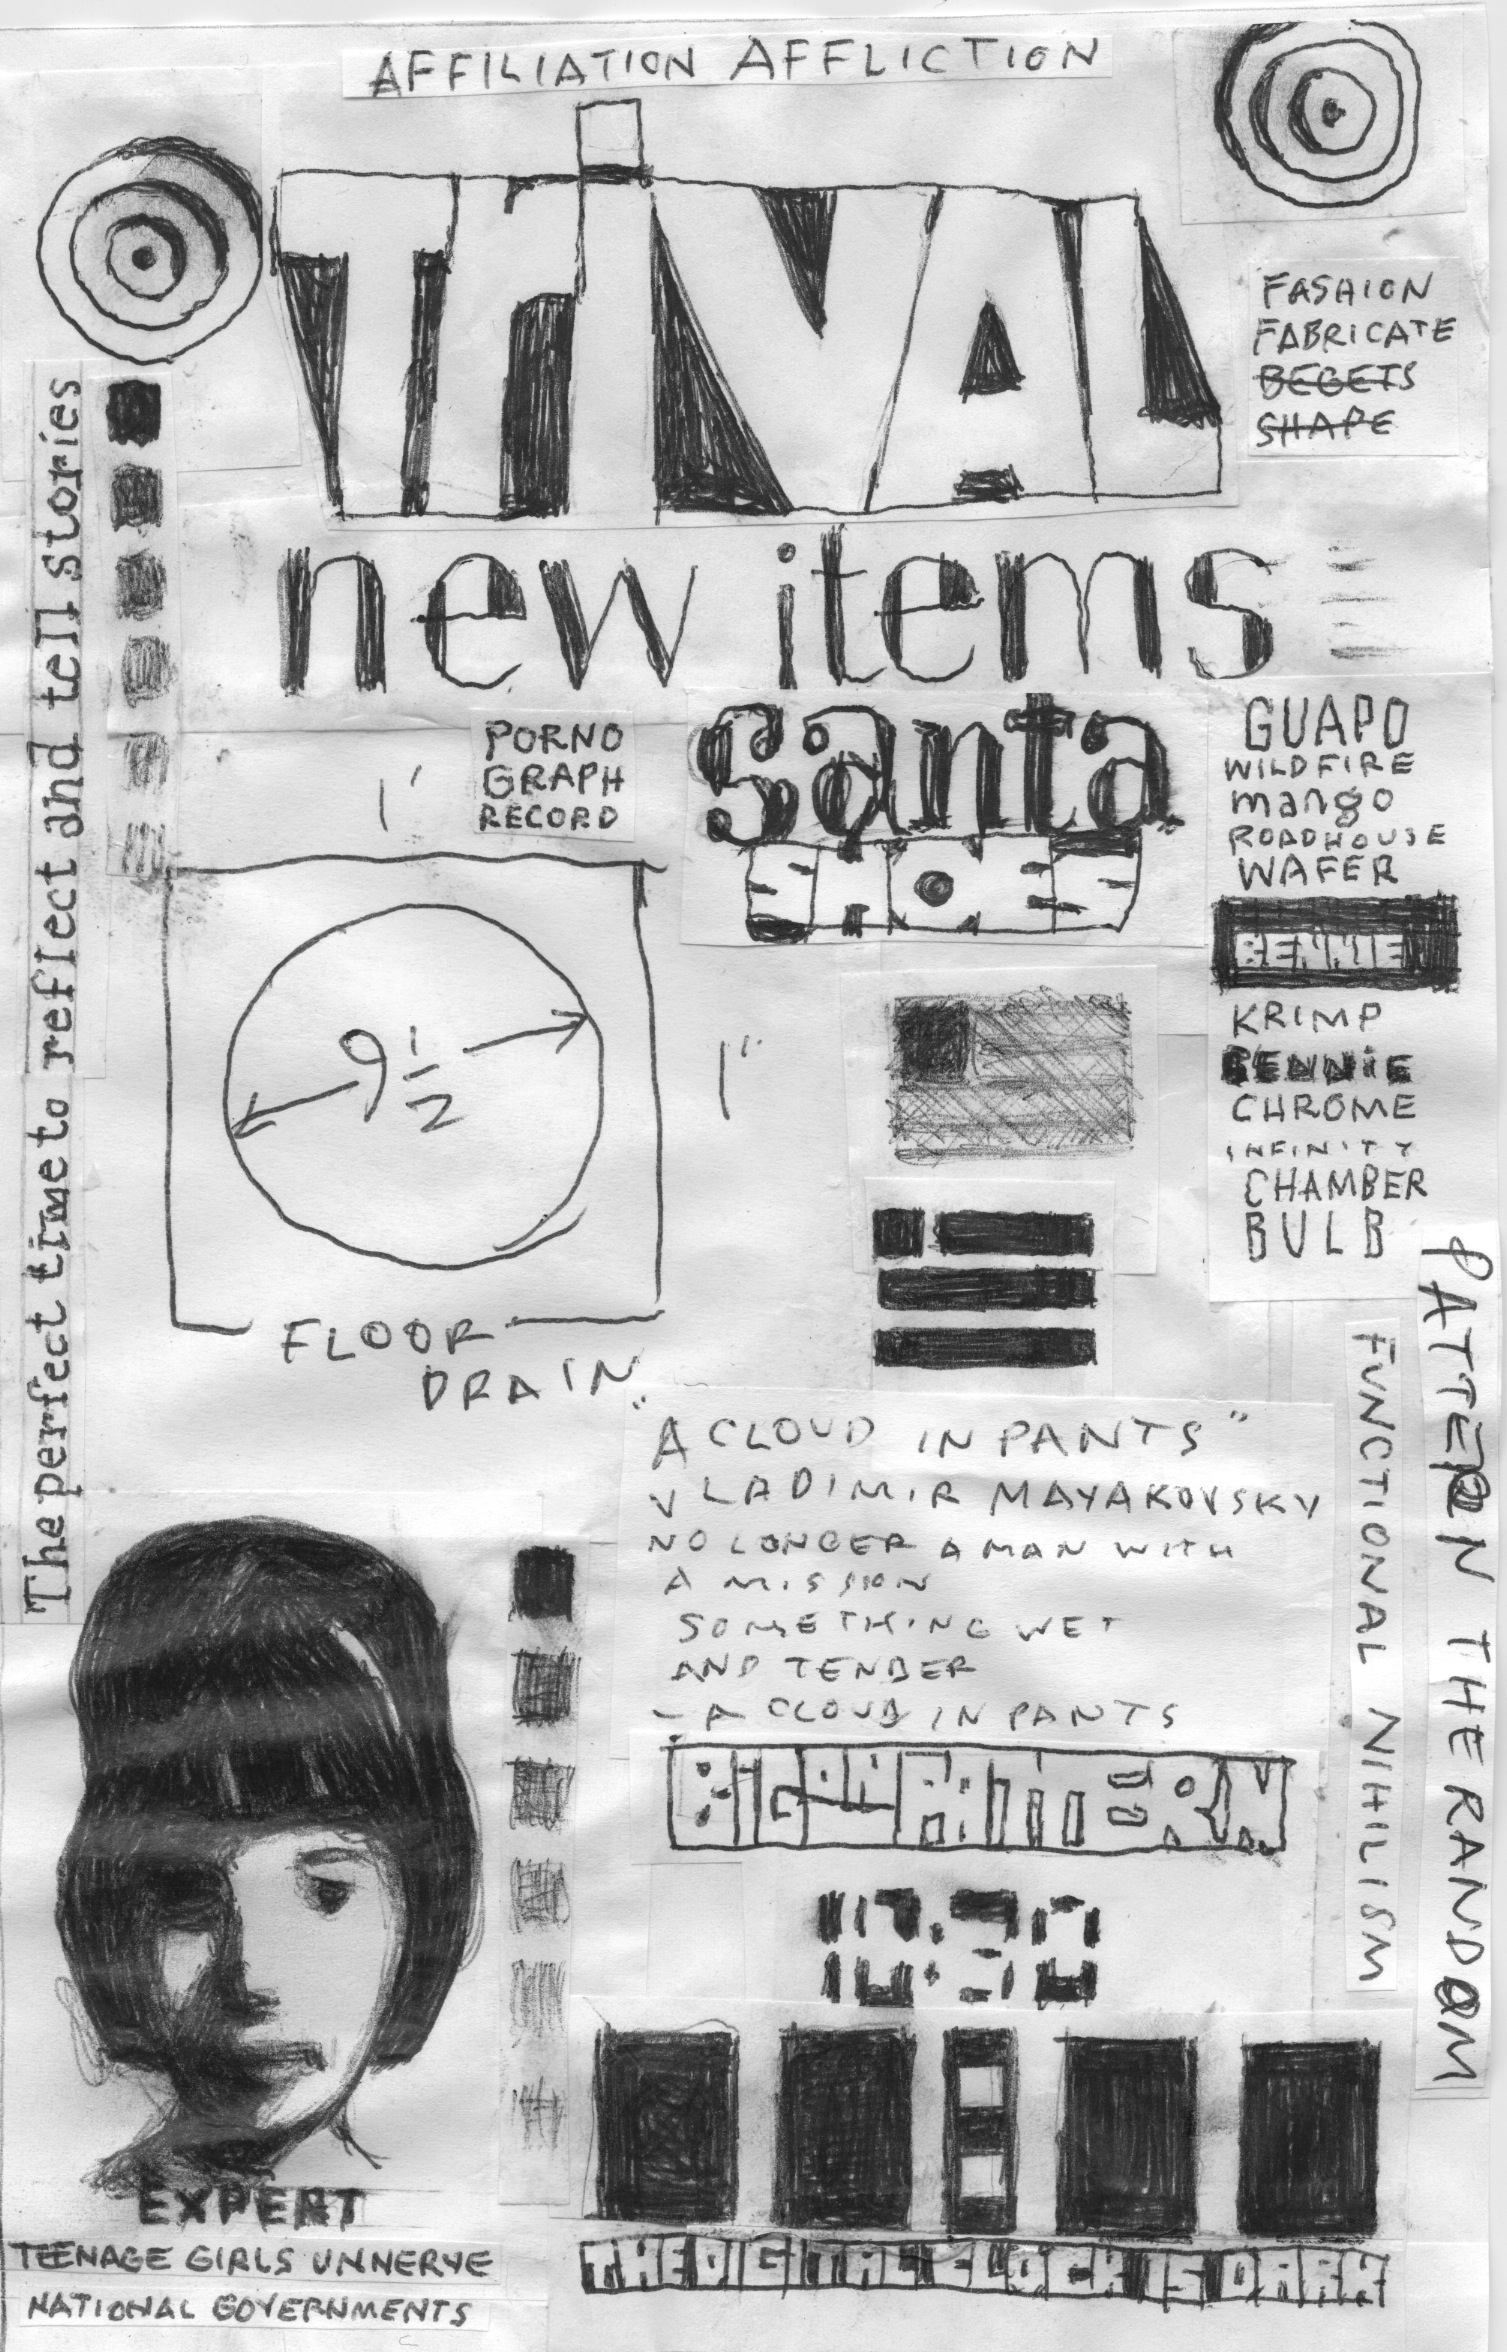 AFFILIATION AFFLICTION
TiVAL
FASHION
FABRICATE
BEGETS
SHAPE
The perfect time to reflect and tell stories
new items
PORNO
GRAPH
RECORD
santa
GUAPO
WILDFIRE
mango
ROADHOUSE
WAFER
BENNIE
KRIMP
BENNIE
CHROME
INFINITY
CHAMBER
BULB
1'
9 1/2
1"
FLOOR
DRAIN
PATTERN THE RANDOM
FUNCTIONAL NIHILISM
"A CLOUD IN PANTS"
VLADIMIR MAYAKOVSKY
NO LONGER A MAN WITH
A MISSION
SOMETHING WET
AND TENDER
- A CLOUD IN PANTS
EXPERT
TEENAGE GIRLS UNNERVE
NATIONAL GOVERNMENTS
THE DIGITAL CLOCK IS DARK